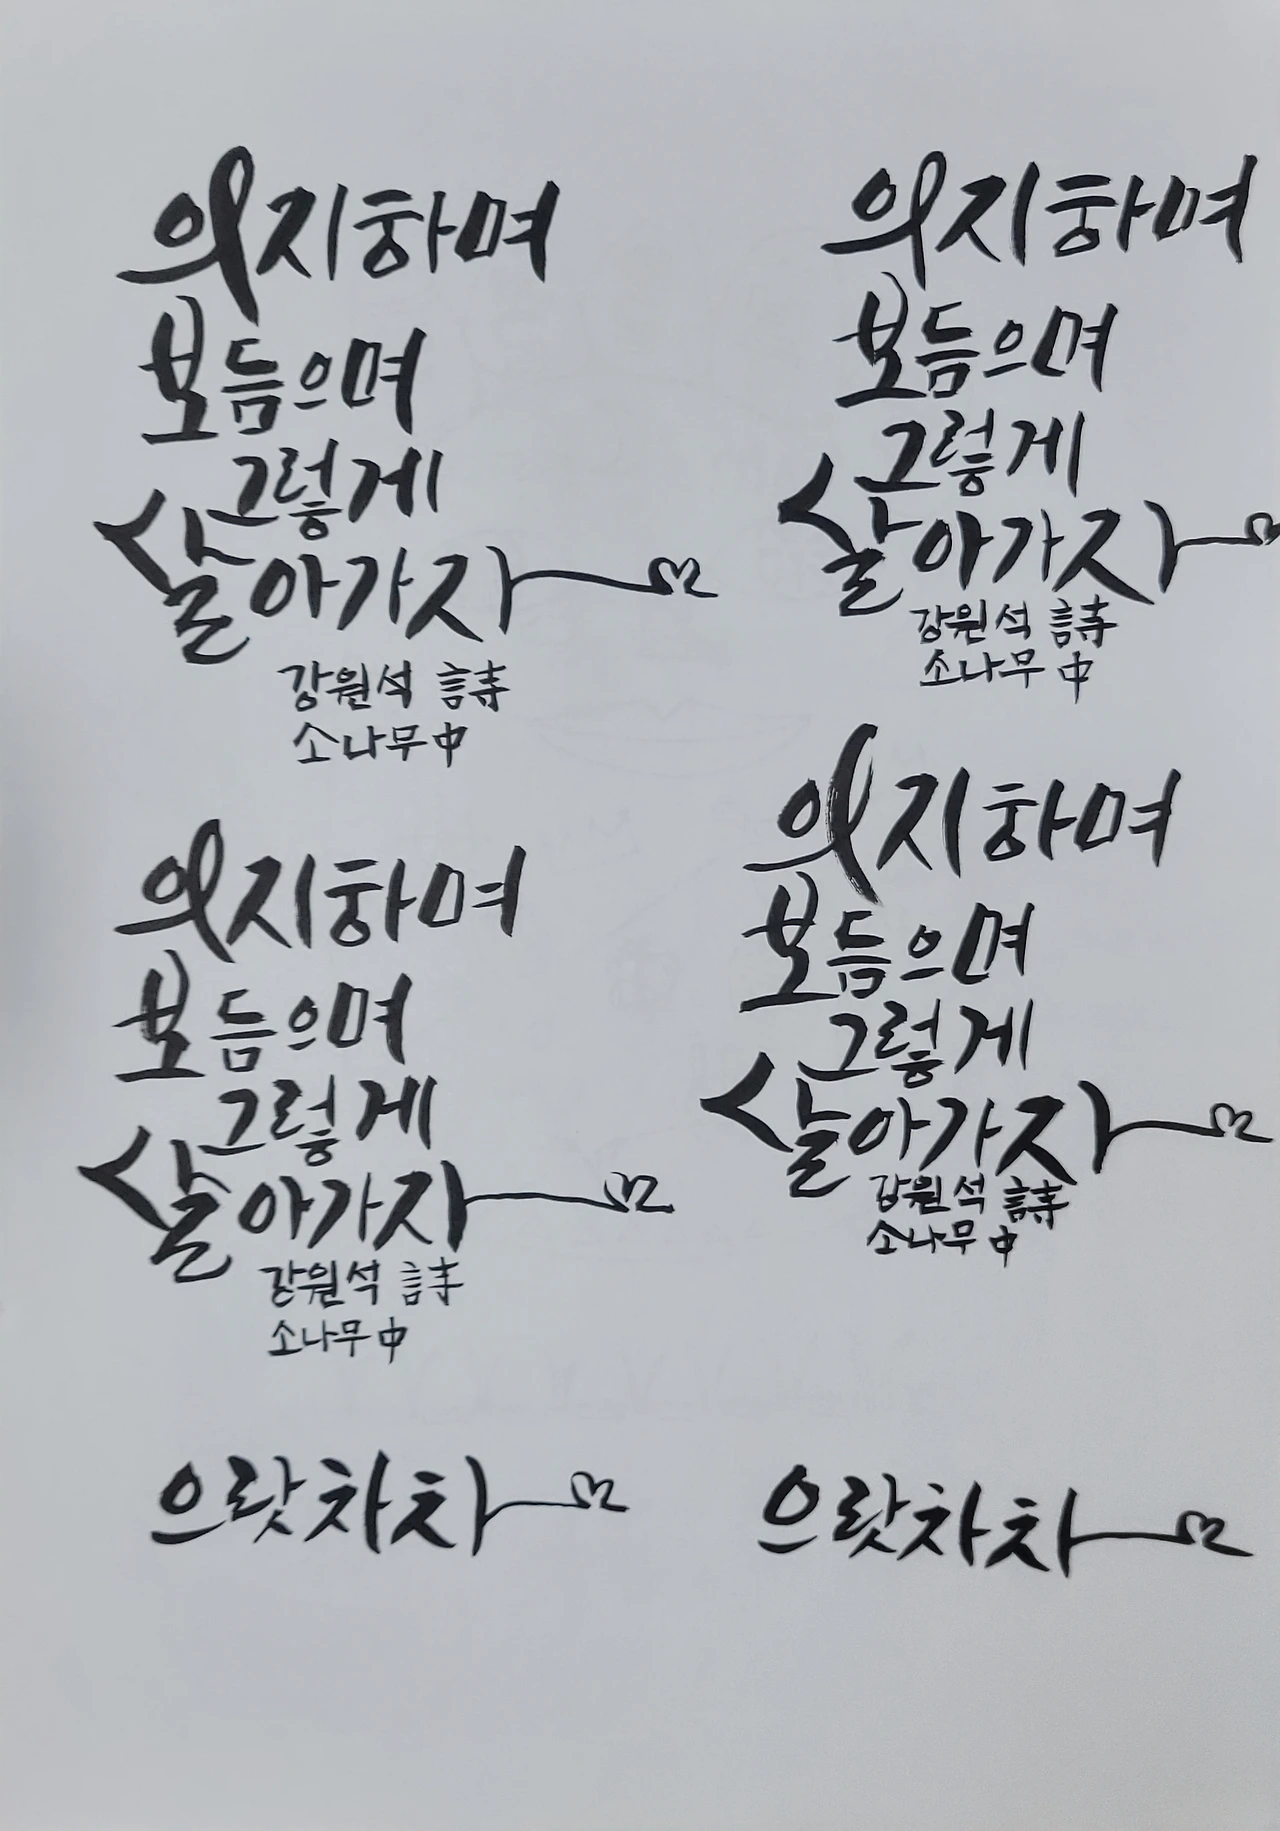 의지하며
보듬으며
그렇게
살아가자
강원석 詩
소나무 中
의지하며
보듬으며
그렇게
살아가자
강원석 詩
소나무 中
의지하며
보듬으며
그렇게
살아가자
강원석 詩
소나무 中
의지하며
보듬으며
그렇게
살아가자
강원석 詩
소나무 中
으랏차차
으랏차차